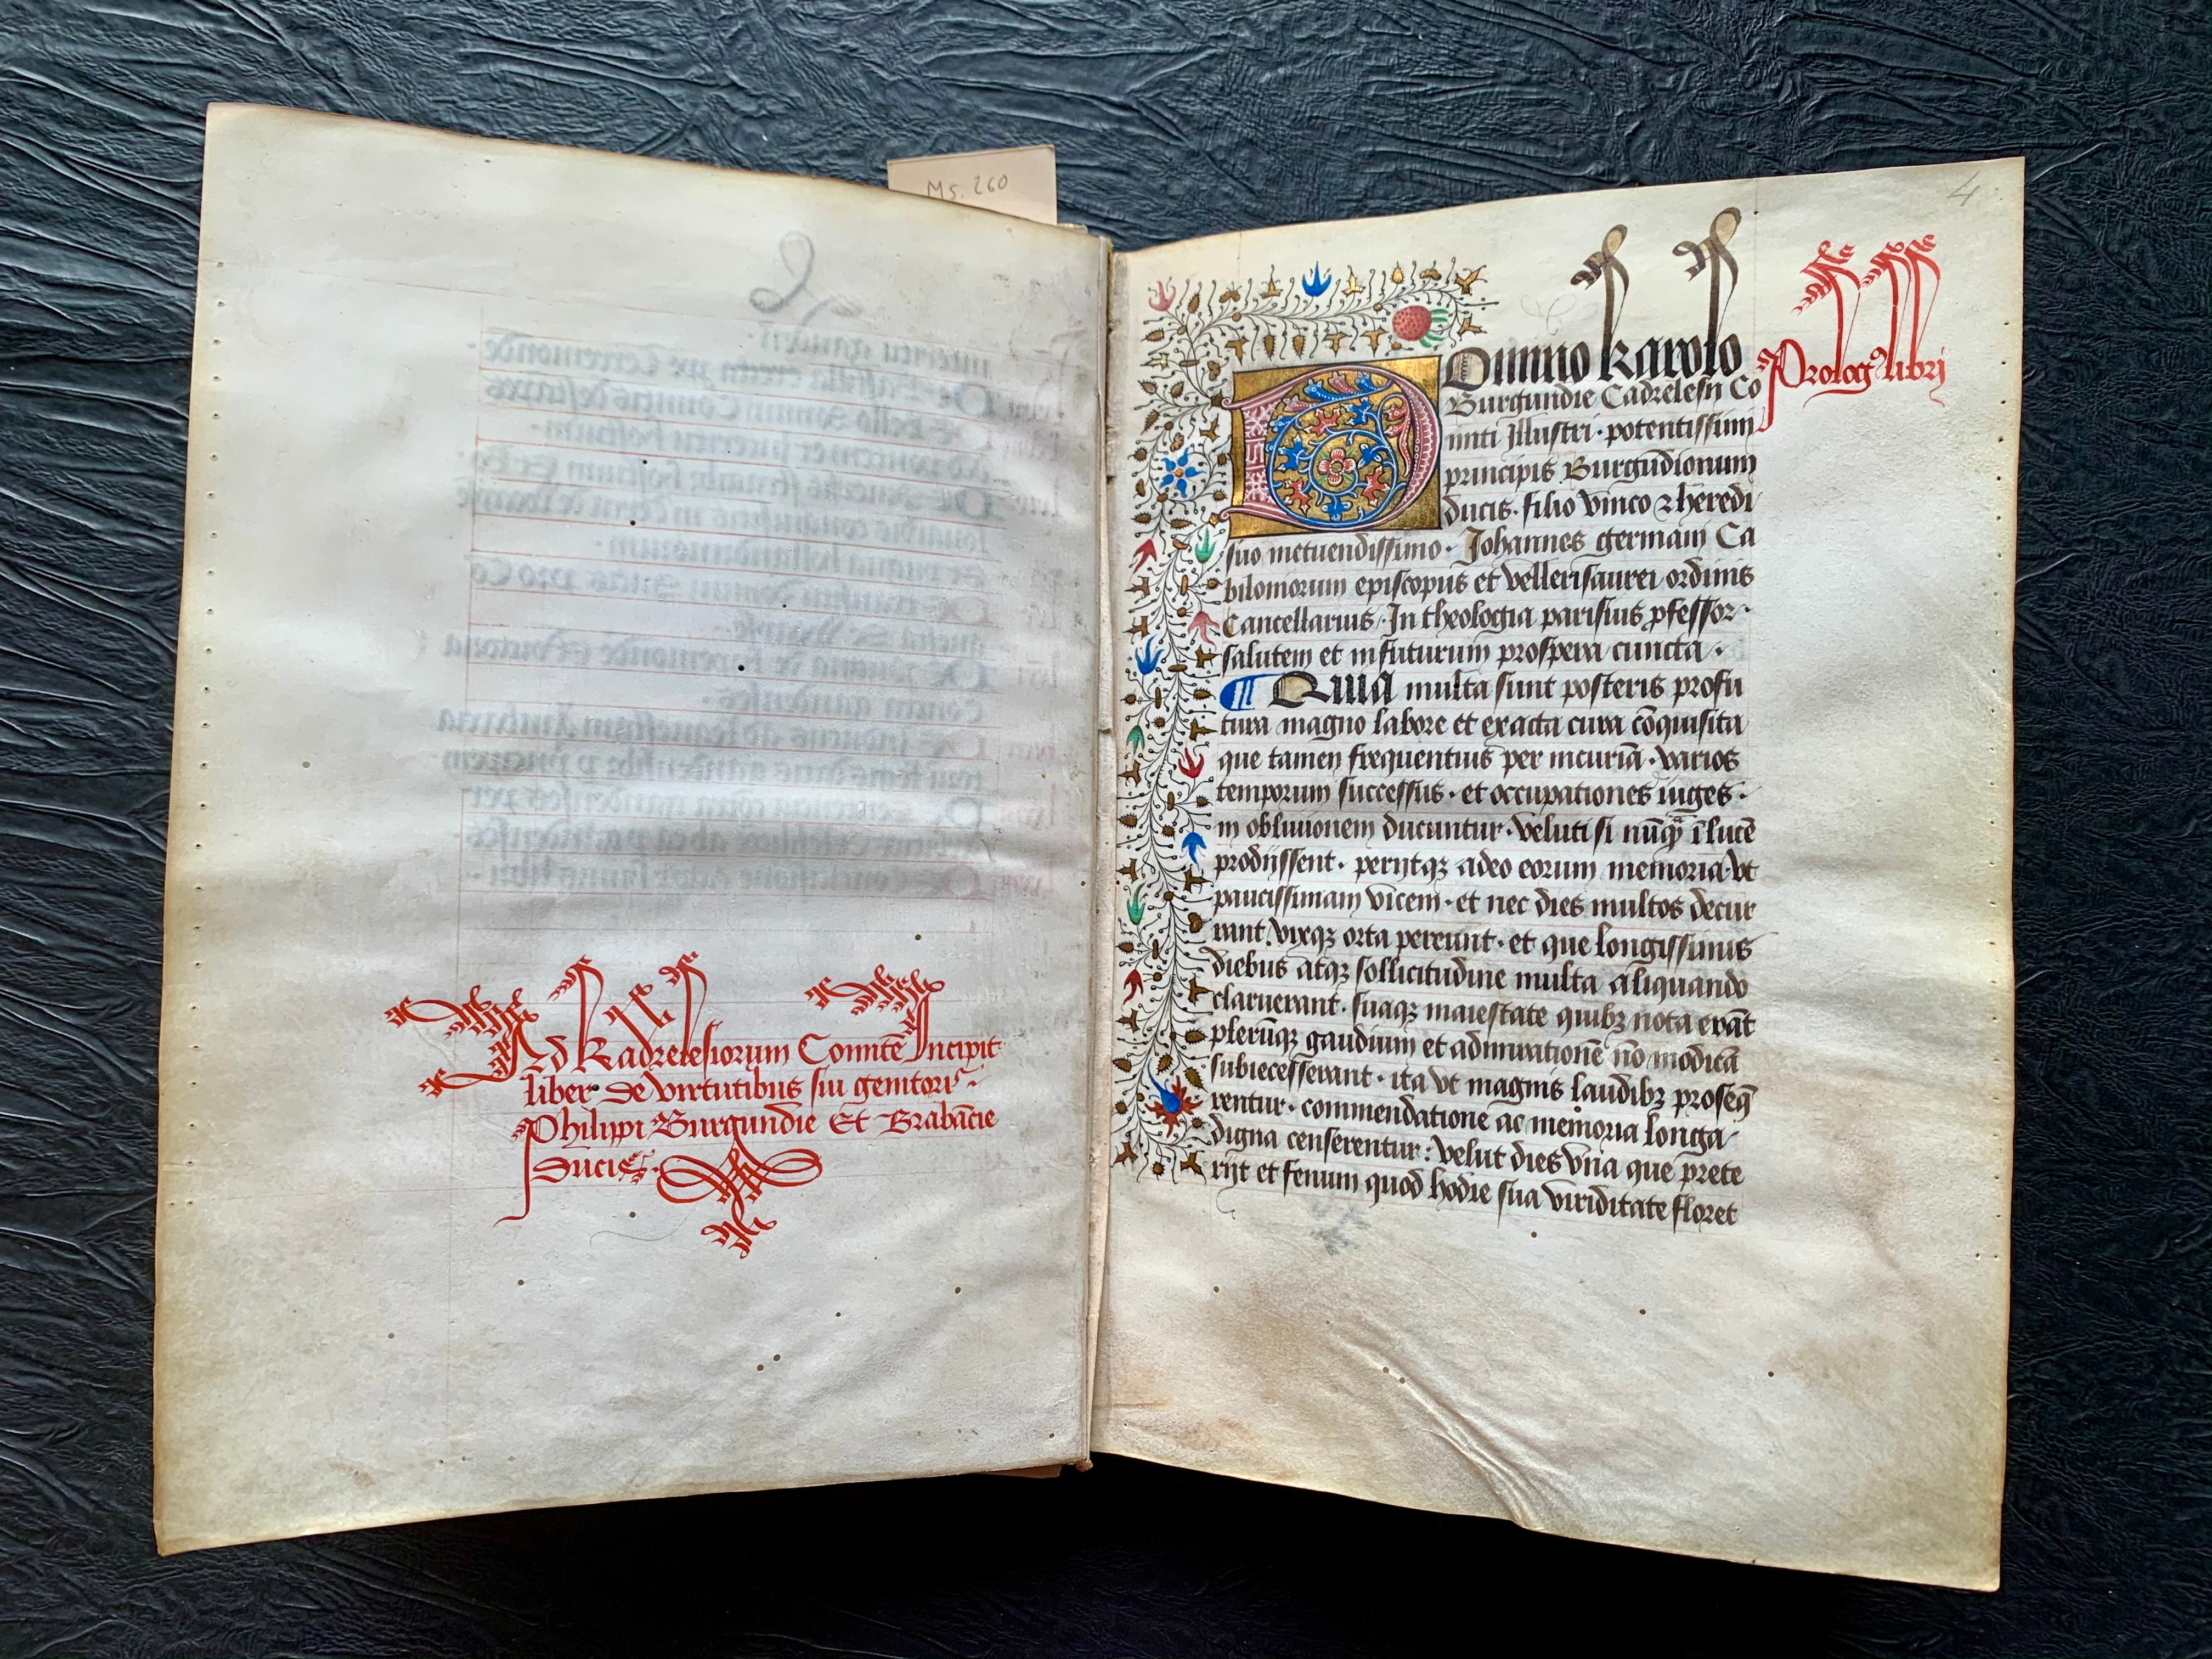 Ms. 260
Ad Kadrelesiorum Comitē Incipit
liber de virtutibus sui genitoris
Philippi Burgundie Et Brabācie
ducis.
4
Prologꝰ libri
Domino karolo
Burgundie Cadrelesij Co
miti Illustri · potentissimi
principis Burgūdionum
ducis · filio vnico ⁊ heredi
suo metuendissimo · Johannes germain Ca
bilonorum episcopus et vellerisaurei ordinis
Cancellarius · In theologia parisius ꝓfessor ·
salutem et in futurum prospera cuncta ·
¶ Quia multa sunt posteris profu
tura magno labore et exacta cura cōquisita
que tamen frequentius per incuriā · varios
temporum successus · et occupationes iuges ·
in obliuionem ducuntur · veluti si nūqᷓ ī lucē
prodijssent · perijtqꝫ adeo eorum memoria · vt
paucissimam vicem · et nec dies multos decur
rant · vixqꝫ orta pereunt · et que longissimis
diebus atqꝫ sollicitudine multa aliquando
claruerant · suaqꝫ maiestate quibꝫ nota erāt
plerūqꝫ gaudium et admirationē nō modicā
subiecesserant · ita vt magnis laudibꝫ proseq̄
rentur · commendatione ac memoria longa
digna censerentur : velut dies vna que prete
rijt et fenum quod hodie sua viriditate floret